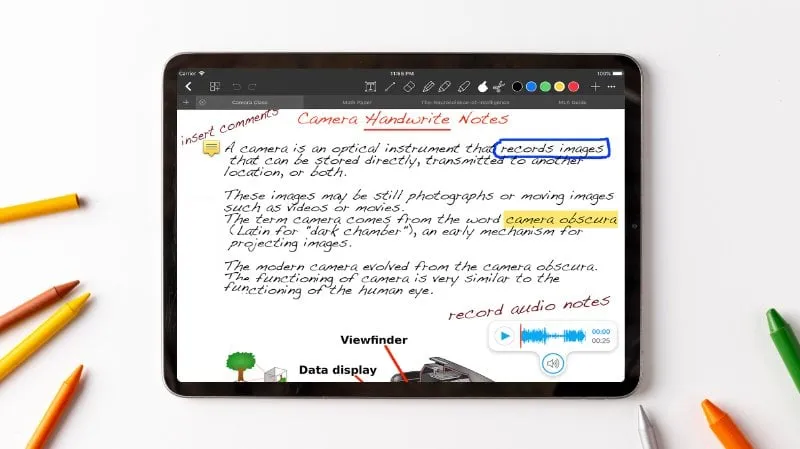 Carrier
11:55 PM
100%
Camera Class
Math Paper
The-Neuroscience-of-Intelligence
MLA Guide
insert comments
Camera Handwrite Notes
A camera is an optical instrument that records images
that can be stored directly, transmitted to another
location, or both.
These images may be still photographs or moving images
such as videos or movies.
The term camera comes from the word camera obscura
(Latin for "dark chamber"), an early mechanism for
projecting images.
The modern camera evolved from the camera obscura.
The functioning of camera is very similar to the
functioning of the human eye.
record audio notes
00:00
00:25
Viewfinder
Data display